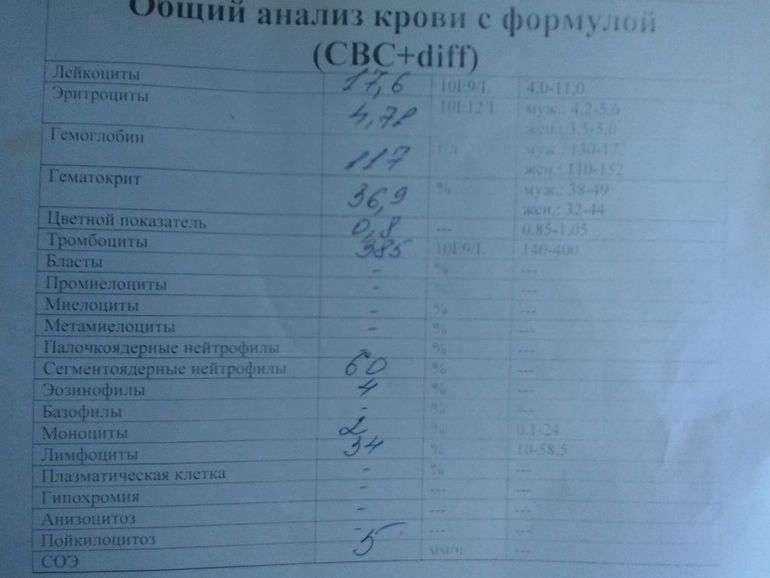 Общий анализ крови с формулой
(CBC+diff)
Лейкоциты 17,6 10E9/L 4,0-11,0
Эритроциты 4,78 10E12/L муж.: 4,2-5,6
жен.: 3,5-5,0
Гемоглобин 117 муж.: 130-172
жен.: 110-152
Гематокрит 36,9 % муж.: 38-49
жен.: 32-44
Цветной показатель 0,8 --- 0,85-1,05
Тромбоциты 385 10E9/L 140-400
Бласты - % ---
Промиелоциты - % ---
Миелоциты - % ---
Метамиелоциты - % ---
Палочкоядерные нейтрофилы - % ---
Сегментоядерные нейтрофилы 60 % ---
Эозинофилы 4 % ---
Базофилы - % ---
Моноциты 2 % 0,1-24
Лимфоциты 34 % 10-58,5
Плазматическая клетка - % ---
Гипохромия - --- ---
Анизоцитоз - --- ---
Пойкилоцитоз - --- ---
СОЭ 5 мм/ч ---